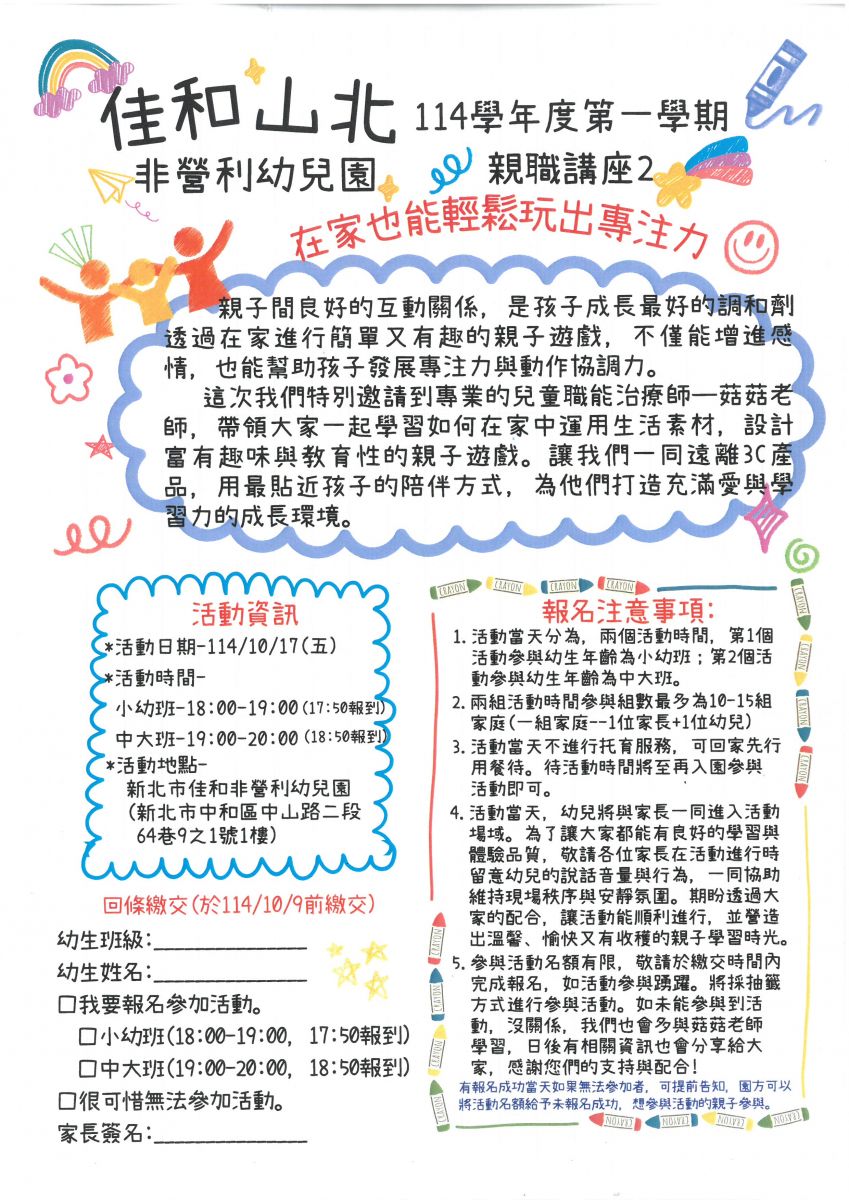 佳和山北 114學年度第一學期
非營利幼兒園 親職講座2
在家也能輕鬆玩出專注力
親子間良好的互動關係，是孩子成長最好的調和劑
透過在家進行簡單又有趣的親子遊戲，不僅能增進感
情，也能幫助孩子發展專注力與動作協調力。
這次我們特別邀請到專業的兒童職能治療師—菇菇老
師，帶領大家一起學習如何在家中運用生活素材，設計
富有趣味與教育性的親子遊戲。讓我們一同遠離3C產
品，用最貼近孩子的陪伴方式，為他們打造充滿愛與學
習力的成長環境。
活動資訊
*活動日期-114/10/17(五)
*活動時間-
小幼班-18:00-19:00(17:50報到)
中大班-19:00-20:00(18:50報到)
*活動地點-
新北市佳和非營利幼兒園
(新北市中和區中山路二段
64巷9之1號1樓)
回條繳交(於114/10/9前繳交)
幼生班級:_______________
幼生姓名:_______________
□我要報名參加活動。
□小幼班(18:00-19:00，17:50報到)
□中大班(19:00-20:00，18:50報到)
□很可惜無法參加活動。
家長簽名:_______________
CRAYON CRAYON CRAYON CRAYON
報名注意事項:
1. 活動當天分為，兩個活動時間，第1個
活動參與幼生年齡為小幼班；第2個活
動參與幼生年齡為中大班。
2. 兩組活動時間參與組數最多為10-15組
家庭(一組家庭--1位家長+1位幼兒)
3. 活動當天不進行托育服務，可回家先行
用餐待。待活動時間將至再入園參與
活動即可。
4. 活動當天，幼兒將與家長一同進入活動
場域。為了讓大家都能有良好的學習與
體驗品質，敬請各位家長在活動進行時
留意幼兒的說話音量與行為，一同協助
維持現場秩序與安靜氛圍。期盼透過大
家的配合，讓活動能順利進行，並營造
出溫馨、愉快又有收穫的親子學習時光。
5. 參與活動名額有限，敬請於繳交時間內
完成報名，如活動參與踴躍。將採抽籤
方式進行參與活動。如未能參與到活
動，沒關係，我們也會多與菇菇老師
學習，日後有相關資訊也會分享給大
家，感謝您們的支持與配合!
有報名成功當天如果無法參加者，可提前告知，園方可以
將活動名額給予未報名成功，想參與活動的親子參與。
CRAYON CRAYON CRAYON CRAYON
CRAYON
CRAYON
CRAYON
CRAYON
CRAYON
CRAYON
CRAYON
CRAYON